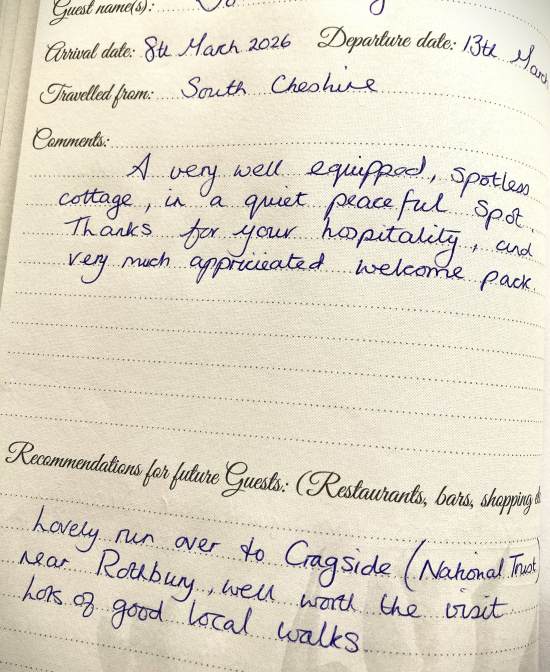 Guest name(s):
Arrival date: 8th March 2026 Departure date: 13th March
Travelled from: South Cheshire
Comments:
A very well equipped, spotless
cottage, in a quiet peaceful spot.
Thanks for your hospitality, and
very much appricieated welcome pack.
Recommendations for future Guests: (Restaurants, bars, shopping
Lovely run over to Cragside (National Trust)
near Rothbury, well worth the visit
Lots of good local walks.